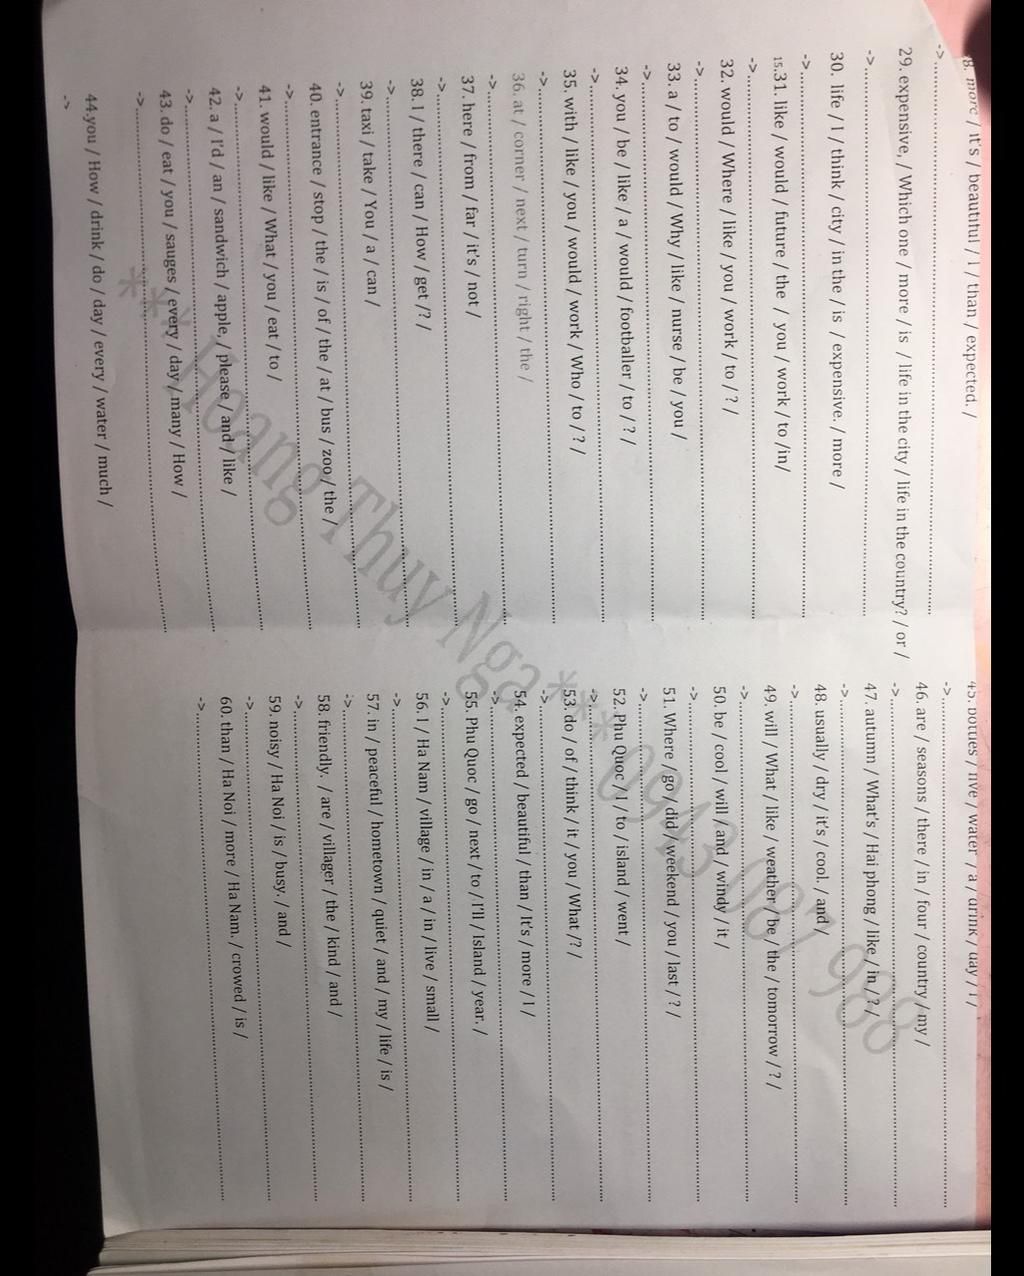 28. more / it's / beautiful / I / than / expected. /
->
29. expensive, / Which one / more / is / life in the city / life in the country? / or /
->
30. life / I / think / city / in the / is / expensive. / more /
->
15.31. like / would / future / the / you / work / to /in/
->
32. would / Where / like / you / work / to / ? /
->
33. a / to / would / Why / like / nurse / be / you /
->
34. you / be / like / a / would / footballer / to / ? /
->
35. with / like / you / would / work / Who / to / ? /
->
36. at / corner / next / turn / right / the /
->
37. here / from / far / it's / not /
->
38. I / there / can / How / get /? /
->
39. taxi / take / You / a / can /
->
40. entrance / stop / the / is / of / the / at / bus / zoo / the /
->
41. would / like / What / you / eat / to /
->
42. a / I'd / an / sandwich / apple, / please / and / like /
->
43. do / eat / you / sauges / every / day / many / How /
->
44.you / How / drink / do / day / every / water / much /
->
45. bottles / five / water / a / drink / day / I /
->
46. are / seasons / there / in / four / country / my /
->
47. autumn / What's / Hai phong / like / in / ? /
->
48. usually / dry / it's / cool. / and /
->
49. will / What / like / weather / be / the / tomorrow / ? /
->
50. be / cool / will / and / windy / it /
->
51. Where / go / did / weekend / you / last / ? /
->
52. Phu Quoc / I / to / island / went /
->
53. do / of / think / it / you / What /? /
->
54. expected / beautiful / than / It's / more / I /
->
55. Phu Quoc / go / next / to / I'll / island / year. /
->
56. I / Ha Nam / village / in / a / in / live / small /
->
57. in / peaceful / hometown / quiet / and / my / life / is /
->
58. friendly. / are / villager / the / kind / and /
->
59. noisy / Ha Noi / is / busy. / and /
->
60. than / Ha Noi / more / Ha Nam. / crowed / is /
->
*** Hoang Thuy Nga *** 0943 087 988